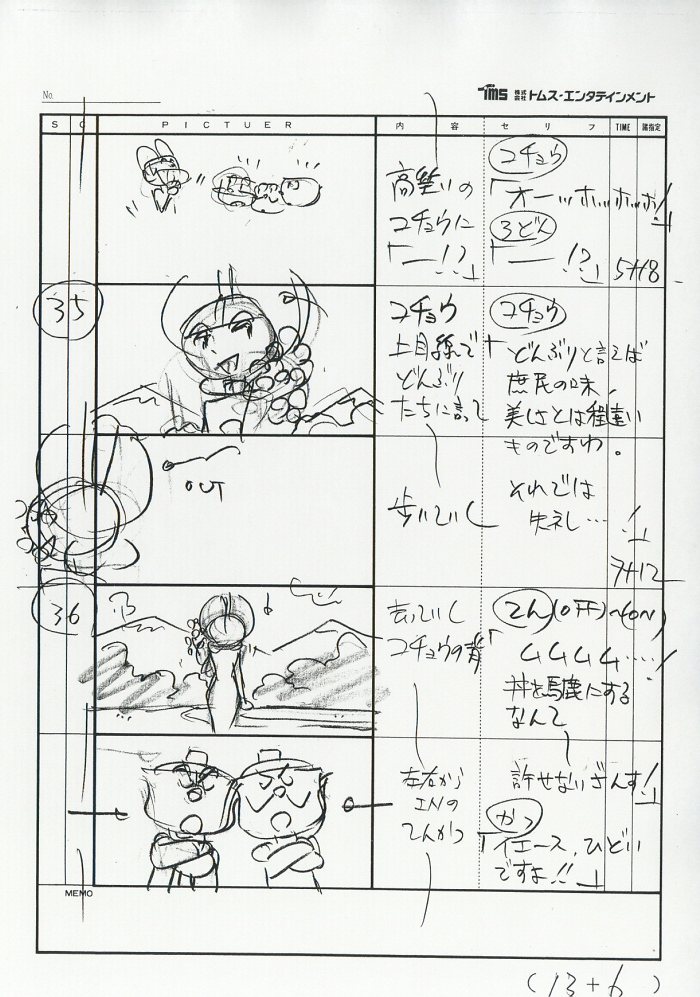 No.
TMS 株式会社 トムス・エンタテインメント
S C PICTUER 内容 セリフ TIME 諸指定
高笑いの
コチョウに
「ー!?」
コチョウ
「オーッホッホッホ!」
3どん
「ー!?」
5+18
35
コチョウ
上目線で
どんぶり
たちに言って
コチョウ
「どんぶりと言えば
庶民の味、
美しさとは程遠い
ものですわ。
OUT
歩いていく
それでは
失礼し…!」
7+12
36
去っていく
コチョウの背
てん(OFF)~(ON)
「ムムムム……!
丼を馬鹿にする
なんて
左右から
INの
てんかつ
許せないざんす!」
かつ
「イエース、ひどい
ですよ!!」
MEMO
(13+6)